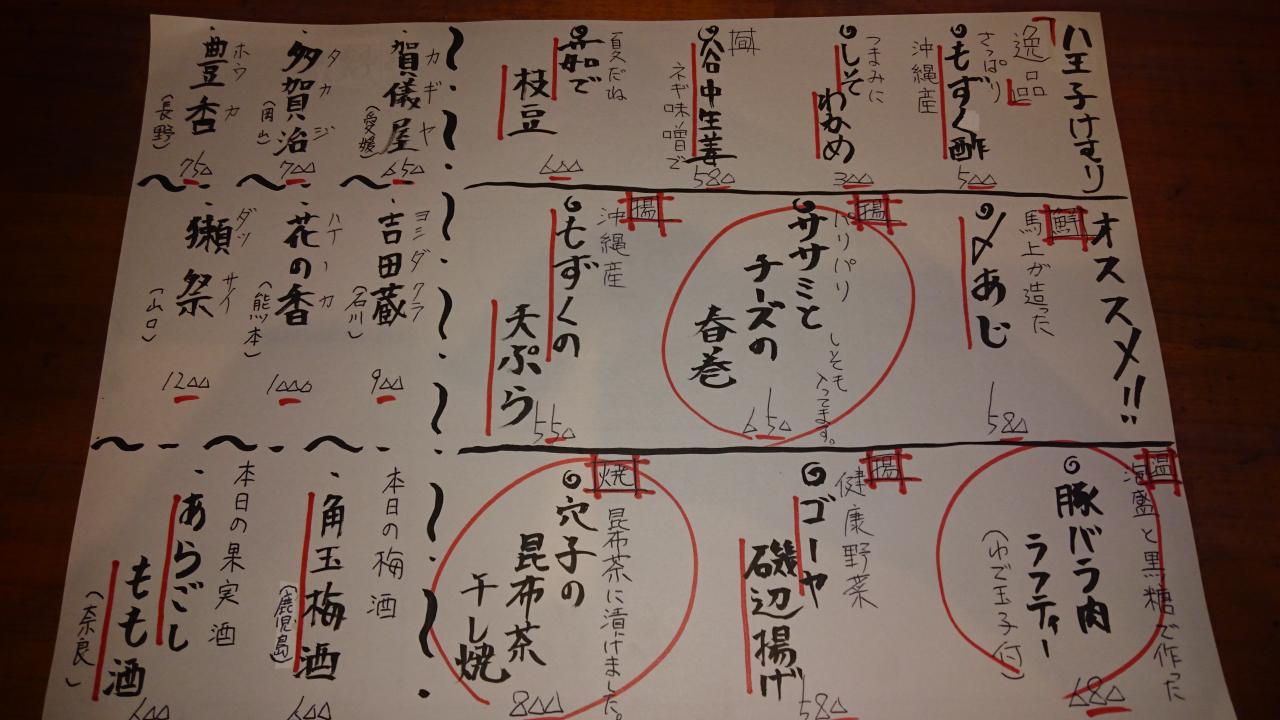 八王子けむり
オススメ!!
逸品
さっぱり
もずく酢
沖縄産
5△△
つまみに
しそ
わかめ
3△△
谷中生姜
ネギ味噌で
58△
夏だね
茹で
枝豆
6△△
鮮
馬上が造った
〆あじ
58△
揚
パリパリ
しそも
入ってます。
ササミと
チーズの
春巻
65△
揚
沖縄産
もずくの
天ぷら
55△
温
泡盛と黒糖で作った
豚バラ肉
ラフティー
(ゆで玉子付)
68△
揚
健康野菜
ゴーヤ
磯辺揚げ
58△
焼
昆布茶に漬けました。
穴子の
昆布茶
干し焼
8△△
カギヤ
賀儀屋
(愛媛)
65△
タカジ
多賀治
(岡山)
7△△
ホウカ
豊香
(長野)
75△
ヨシダクラ
吉田蔵
(石川)
9△△
ハナーカ
花の香
(熊本)
1△△△
ダッサイ
獺祭
(山口)
12△△
本日の梅酒
角玉梅酒
(鹿児島)
6△△
本日の果実酒
あらごし
もも酒
(奈良)
6△△